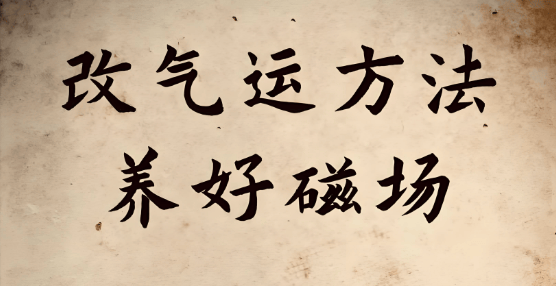 改气运方法
养好磁场